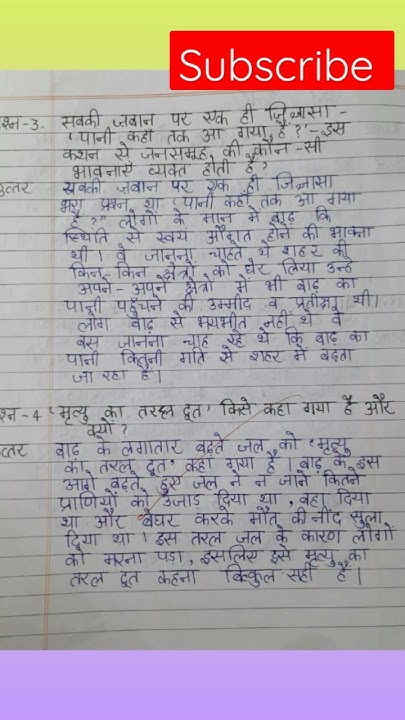 Subscribe
श्न-3. सबकी ज़बान पर एक ही जिज्ञासा -
'पानी कहाँ तक आ गया है?'- इस
कथन से जनसमूह की कौन-सी
भावनाएँ व्यक्त होती हैं?
त्तर सबकी ज़बान पर एक ही जिज्ञासा
भरा प्रश्न था 'पानी कहाँ तक आ गया
है?" लोगों के मान में बाढ़ कि
स्थिति से स्वयं अवगत होने की भावना
थी। वे जानना चाहते थे शहर की
किन-किन क्षेत्रों को घेर लिया उन्हें
अपने-अपने क्षेत्रों में भी बाढ़ का
पानी पहुँचने की उम्मीद व प्रतीक्षा थी।
लोग बाढ़ से भयभीत नहीं थे वे
बस जानना चाह रहे थे कि बाढ़ का
पानी कितनी गति से शहर में बढ़ता
जा रहा है।
श्न-4 'मृत्यु का तरल दूत' किसे कहा गया है और
क्यों?
त्तर बाढ़ के लगातार बढ़ते जल को 'मृत्यु
का तरल दूत' कहा गया है। बाढ़ के इस
आगे बढ़ते हुए जल ने न जाने कितने
प्राणियों को उजाड़ दिया था, बहा दिया
था और बेघर करके मौत की नींद सुला
दिया था। इस तरल जल के कारण लोगों
को मरना पड़ा, इसलिए इसे मृत्यु का
तरल दूत कहना बिल्कुल सही है।